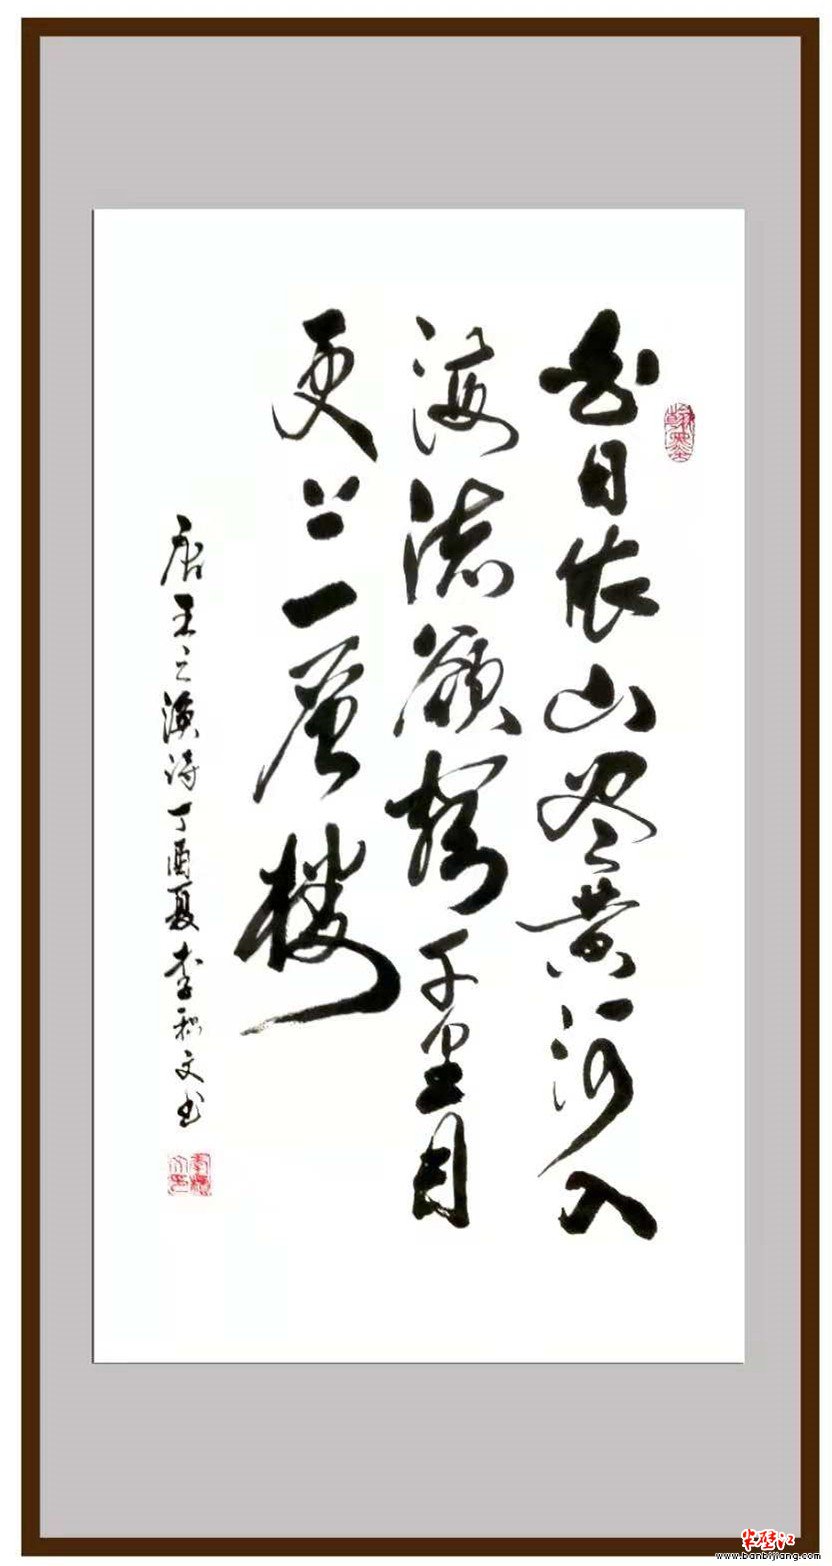 白日依山尽黄河入
海流欲窮千里目
更上一層楼
唐王之涣诗丁酉夏李文书
翰墨
半壁江
www.banbijiang.com